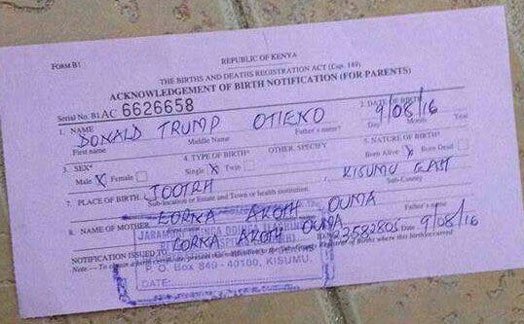 FORM B1
REPUBLIC OF KENYA
THE BIRTHS AND DEATHS REGISTRATION ACT (Cap. 149)
ACKNOWLEDGEMENT OF BIRTH NOTIFICATION (FOR PARENTS)
Serial No. B1AC 6626658
1. NAME DONALD TRUMP OTIENO
First name Middle Name Father's name
2. DATE OF BIRTH 9/08/16
Day Month Year
3. SEX* Male X Female
4. TYPE OF BIRTH* Single X Twin OTHER, SPECIFY
5. NATURE OF BIRTH* Born Alive X Born Dead
7. PLACE OF BIRTH JOOTRH KISUMU EAST
Sub-location or Estate and Town or health institution Sub-County
8. NAME OF MOTHER LORNA AKOTH OUMA
Father's name
NOTIFICATION ISSUED TO LORNA AKOTH OUMA 22582806 9/08/16
P. O. Box 849 - 40100, KISUMU.
DATE: